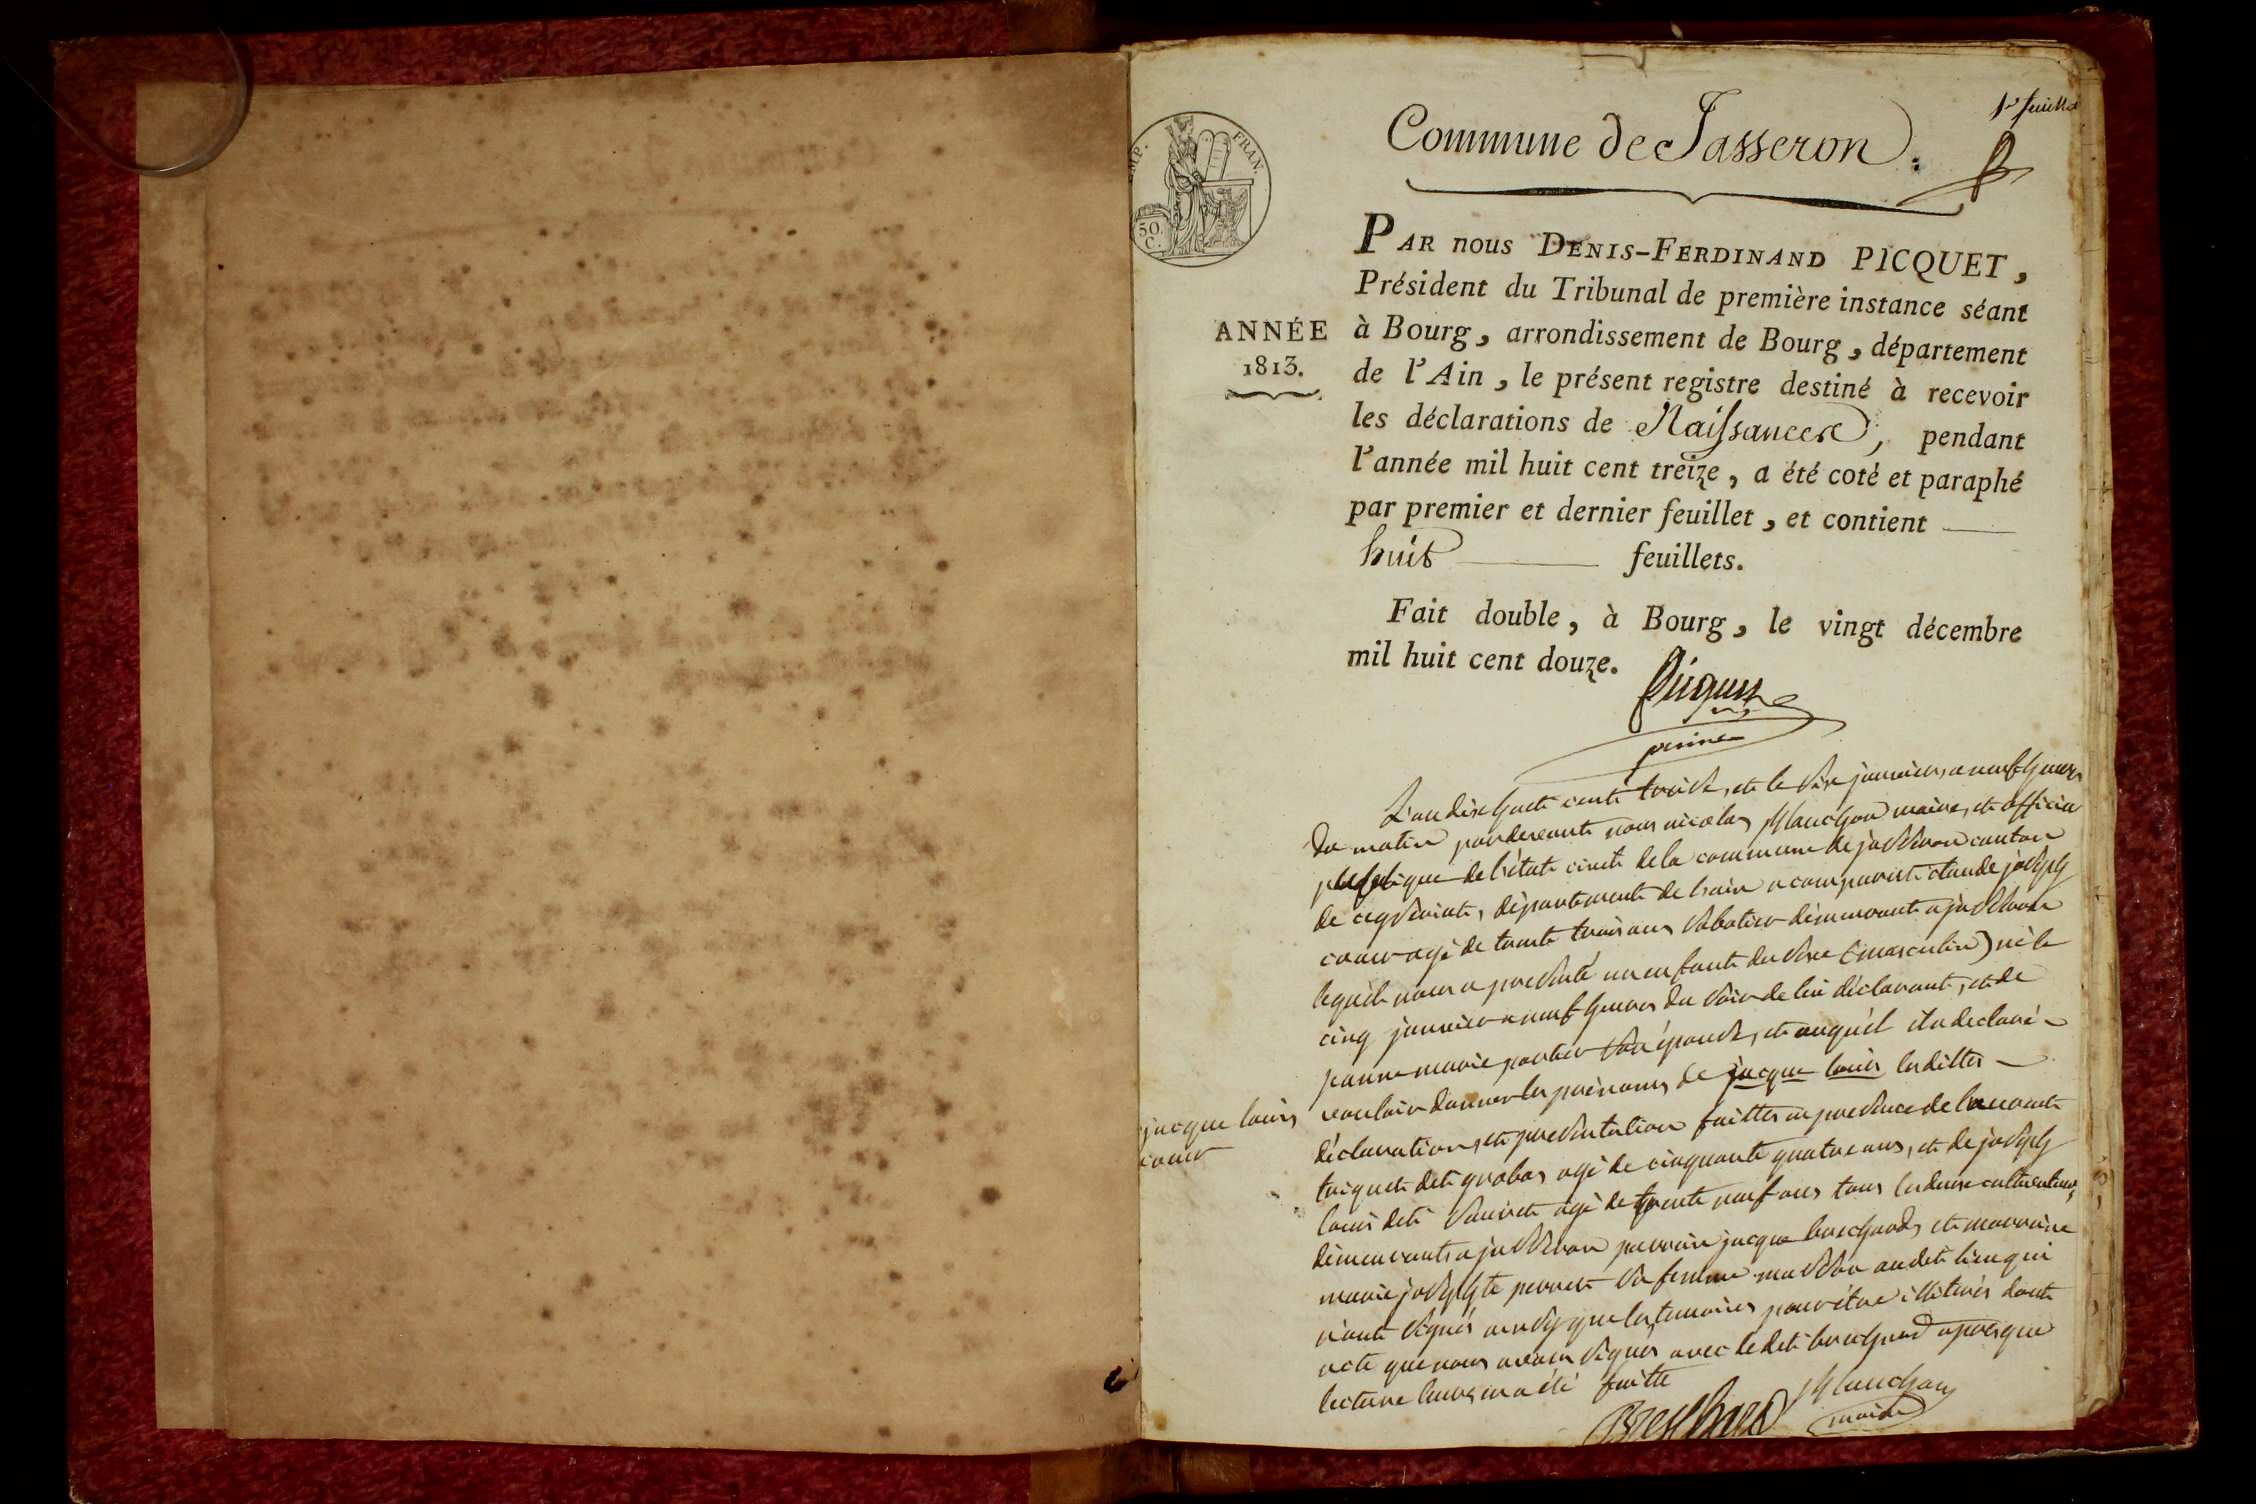 1er feuillet
Commune de Jasseron.
IMP. FRAN.
50.
C.
PAR nous DENIS-FERDINAND PICQUET,
Président du Tribunal de première instance séant
ANNÉE
1813.
à Bourg, arrondissement de Bourg, département
de l'Ain, le présent registre destiné à recevoir
les déclarations de Naissances, pendant
l'année mil huit cent treize, a été coté et paraphé
par premier et dernier feuillet, et contient
huit feuillets.
Fait double, à Bourg, le vingt décembre
mil huit cent douze.
Picquet
L'an dix huit cent treize, et le six janvier, a neuf heures
du matin pardevant nous nicolas maire, et officier
publique de l'état civil de la commune de jasseron canton
de ceyseriat, département de l'ain a comparut claude joseph
agé de trente trois ans sabotier démeurant a jasseron
lequel nous a presenté un enfant du sexe (masculin) né le
cinq janvier a neuf heures du soir de lui déclarant, et de
jeanne marie son épouse, et auquel il a declaré
vouloir donner les prénoms de jacque louis lesdittes
jacque louis
déclaration, et presentation faittes en presence de laurent
dit agé de cinquante quatre ans, et de joseph
louis dit agé de trente neuf ans tous les deux cultivateurs,
démeurants a jasseron parrain jacque bouchard, et marraine
marie josephte perret sa femme audit lieu qui
n'ont signés ainsy que les temoins pour être illiterés dont
acte que nous avons signés avec le dit bouchard apres que
lecture leurs en a été faitte
maire